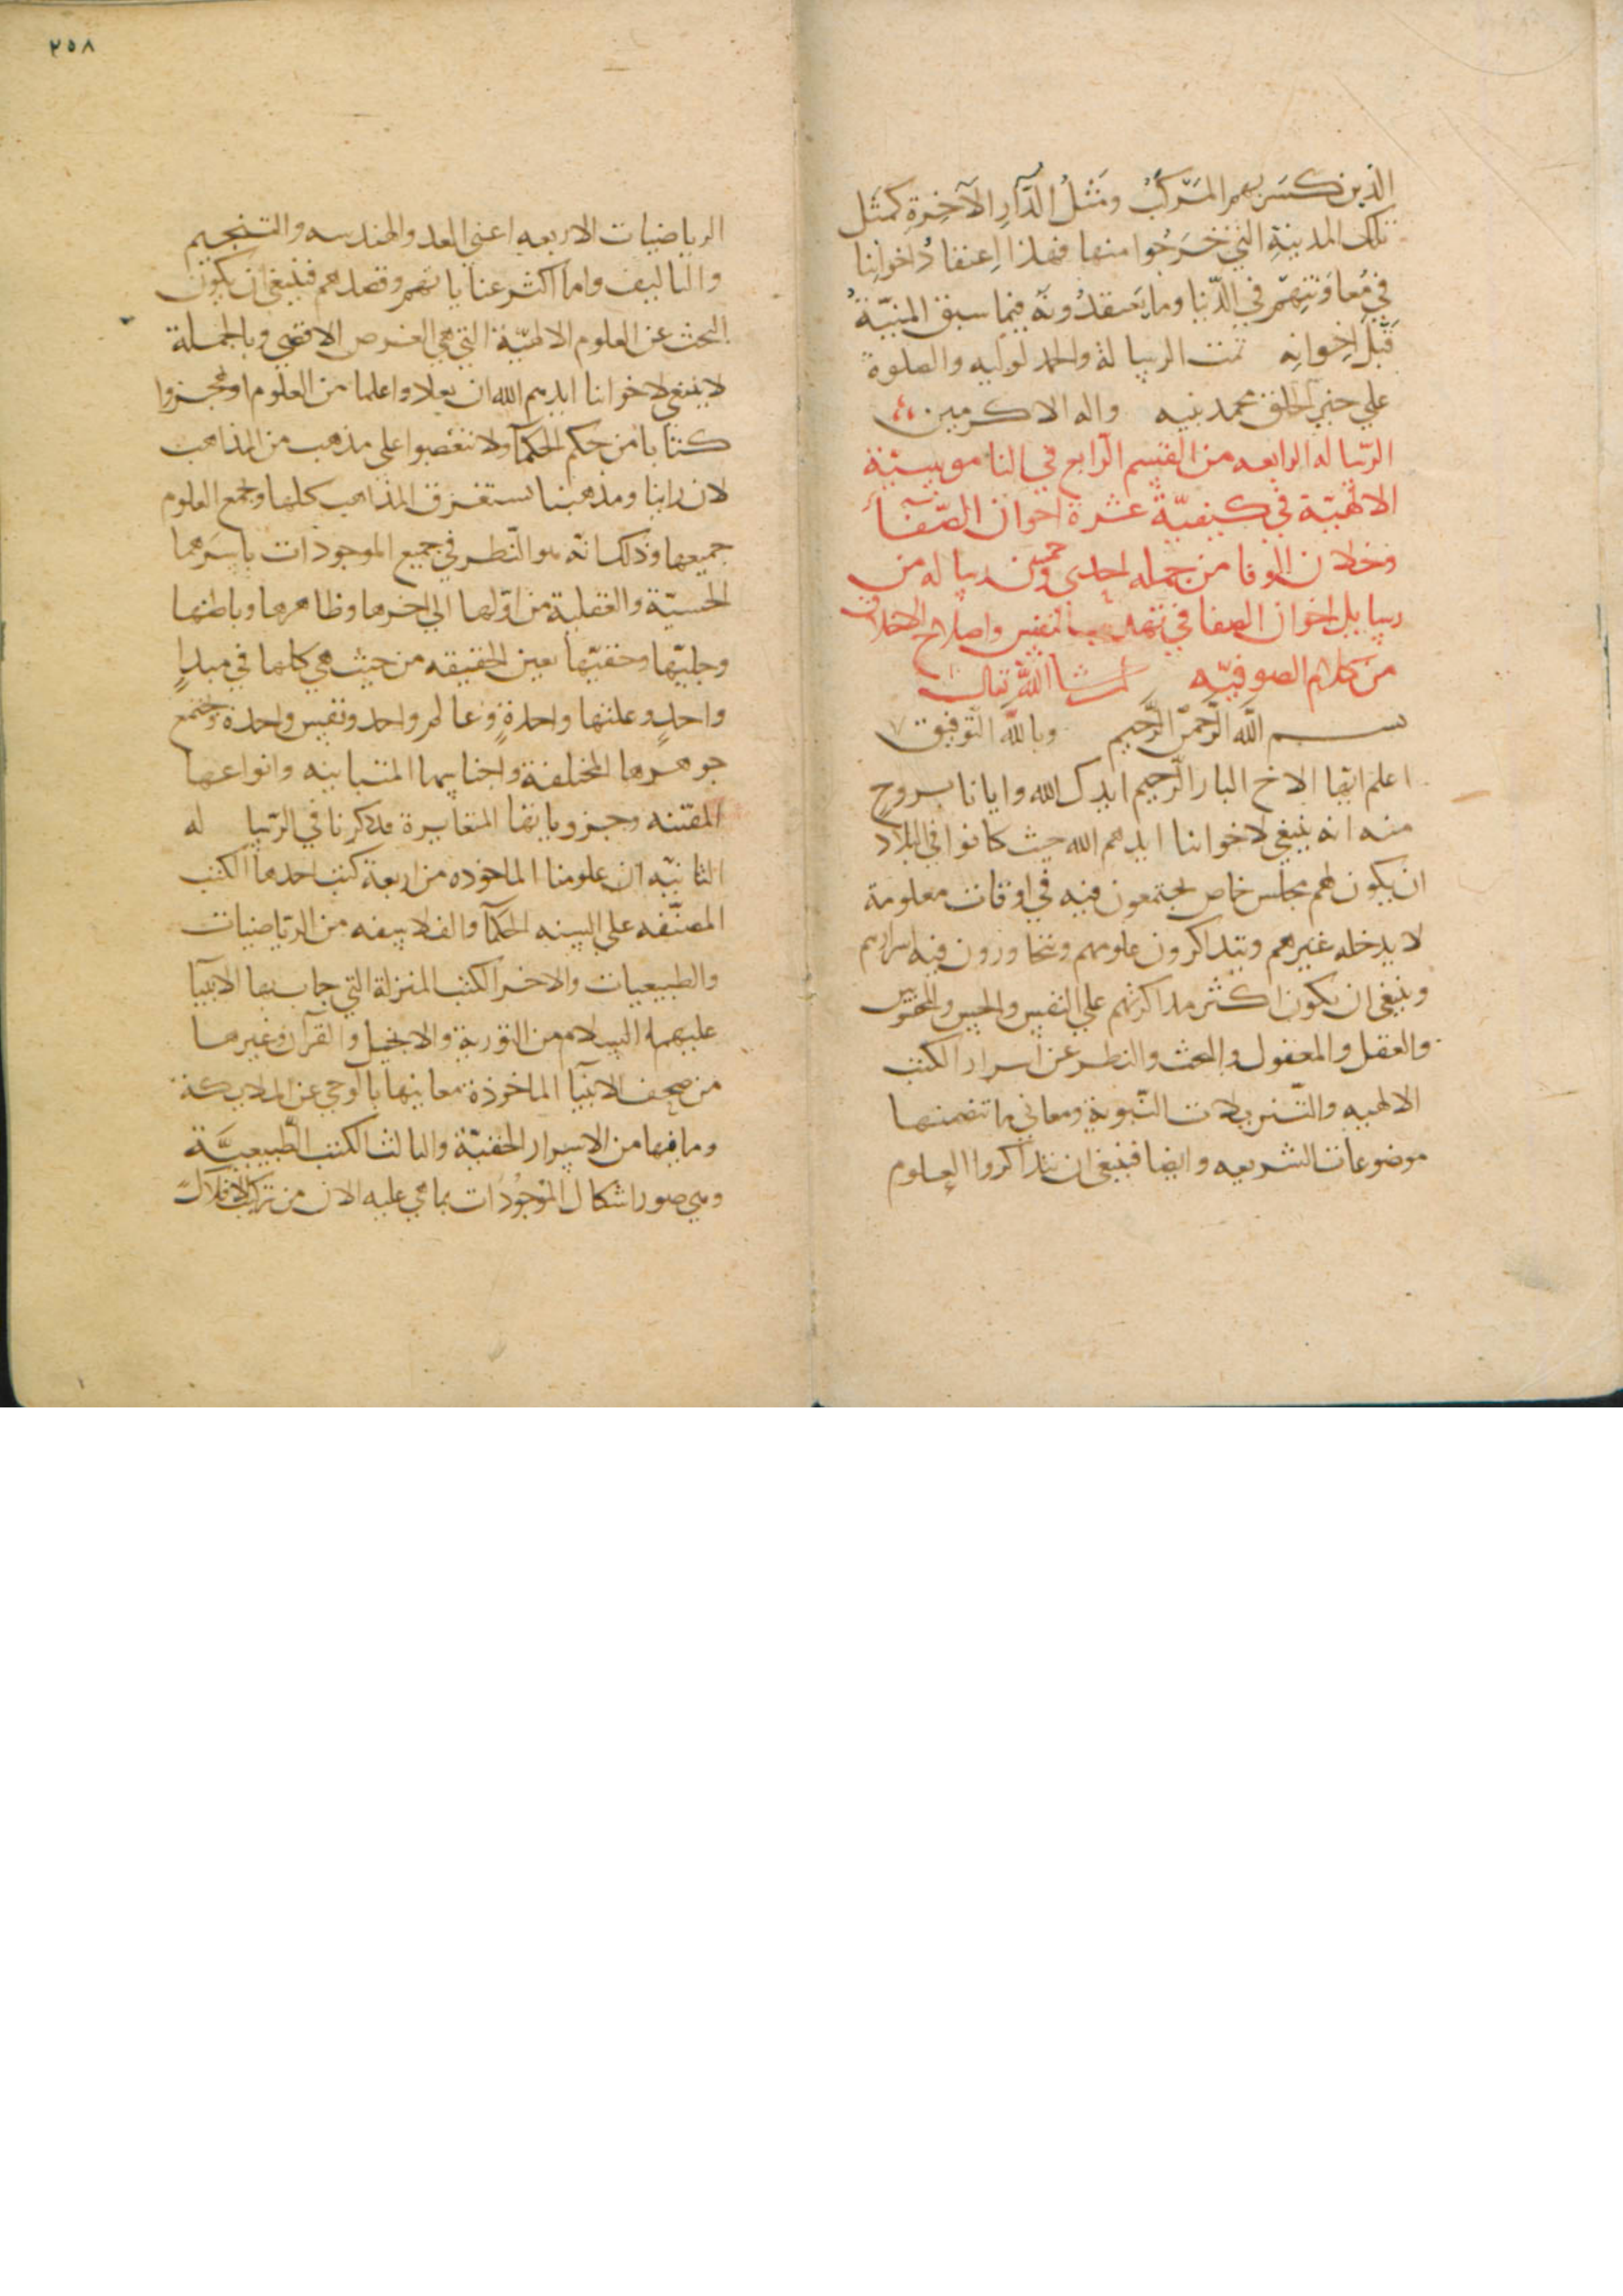 الذين كسر بهم المركب ومثل الدار الآخرة كمثل
تلك المدينة التي خرجوا منها فهذا اعتقاد اخواننا
في معاونتهم في الدنيا وما يعتقدونه فيما سبق المنية
قبل اخوانه تمت الرسالة والحمد لوليه والصلوة
علي خير الخلق محمد نبيه واله الاكرمين
الرسالة الرابعه من القسم الرابع في الناموسية
الالهية في كيفية عشرة اخوان الصفا
وخلان الوفا من جمله احدى وخمسين رساله من
رسايل اخوان الصفا في تهذيب النفس واصلاح الاخلاق
من كلام الصوفيه ان شا الله تعالى
بسم الله الرحمن الرحيم وبالله التوفيق
اعلم ايها الاخ البار الرحيم ايدك الله وايانا بروح
منه انه ينبغي لاخواننا ايدهم الله حيث كانوا في البلاد
ان يكون لهم مجلس خاص يجتمعون فيه في اوقات معلومة
لا يدخله غيرهم ويتذاكرون علومهم ويتحاورون فيه اسرارهم
وينبغي ان يكون اكثر مذاكرتهم علي النفس والحس والمحسوس
والعقل والمعقول والبحث والنظر عن اسرار الكتب
الالهيه والتنزيلات النبوية ومعاني ما تتضمنها
موضوعات الشريعه وايضا فينبغي ان يتذاكروا العلوم
٢٥٨
الرياضيات الاربعه اعني العدد والهندسه والتنجيم
والتاليف واما اكثر عناياتهم وقصدهم فينبغي ان يكون
البحث عن العلوم الالهية التي هي الغرض الاقصي وبالجملة
لا ينبغي لاخواننا ايدهم الله ان يعادوا علما من العلوم او يهجروا
كتابا من حكم الحكما ولا تتعصبوا على مذهب من المذاهب
لان راينا ومذهبنا يستغرق المذاهب كلها ويجمع العلوم
جميعها وذلك انه هو النظر في جميع الموجودات باسرها
الحسية والعقلية من اولها الي اخرها وظاهرها وباطنها
وجليها وخفيها بعين الحقيقه من حيث هي كلها في مبدا
واحد وعلتها واحدة وعالم واحد ونفس واحدة وتجمع
جوهرها المختلفة واجناسها المتباينه وانواعها
المفننه وجزوياتها المتغايرة وذكرنا في الرسا له
الثانيه ان علومنا الماخوذه من اربعة كتب احدها الكتب
المصنفه علي السنه الحكما والفلاسفه من الرياضيات
والطبيعيات والاخر الكتب المنزلة التي جات بها الانبيا
عليهم السلام من التورية والانجيل والقرآن وغيرها
من صحف الانبيآ الماخوذة معانيها بالوحي عن الملايكة
وما فيها من الاسرار الخفية والثالث الكتب الطبيعية
وهي صور اشكال الموجودات بما هي عليه الان من تركيب الافلاك